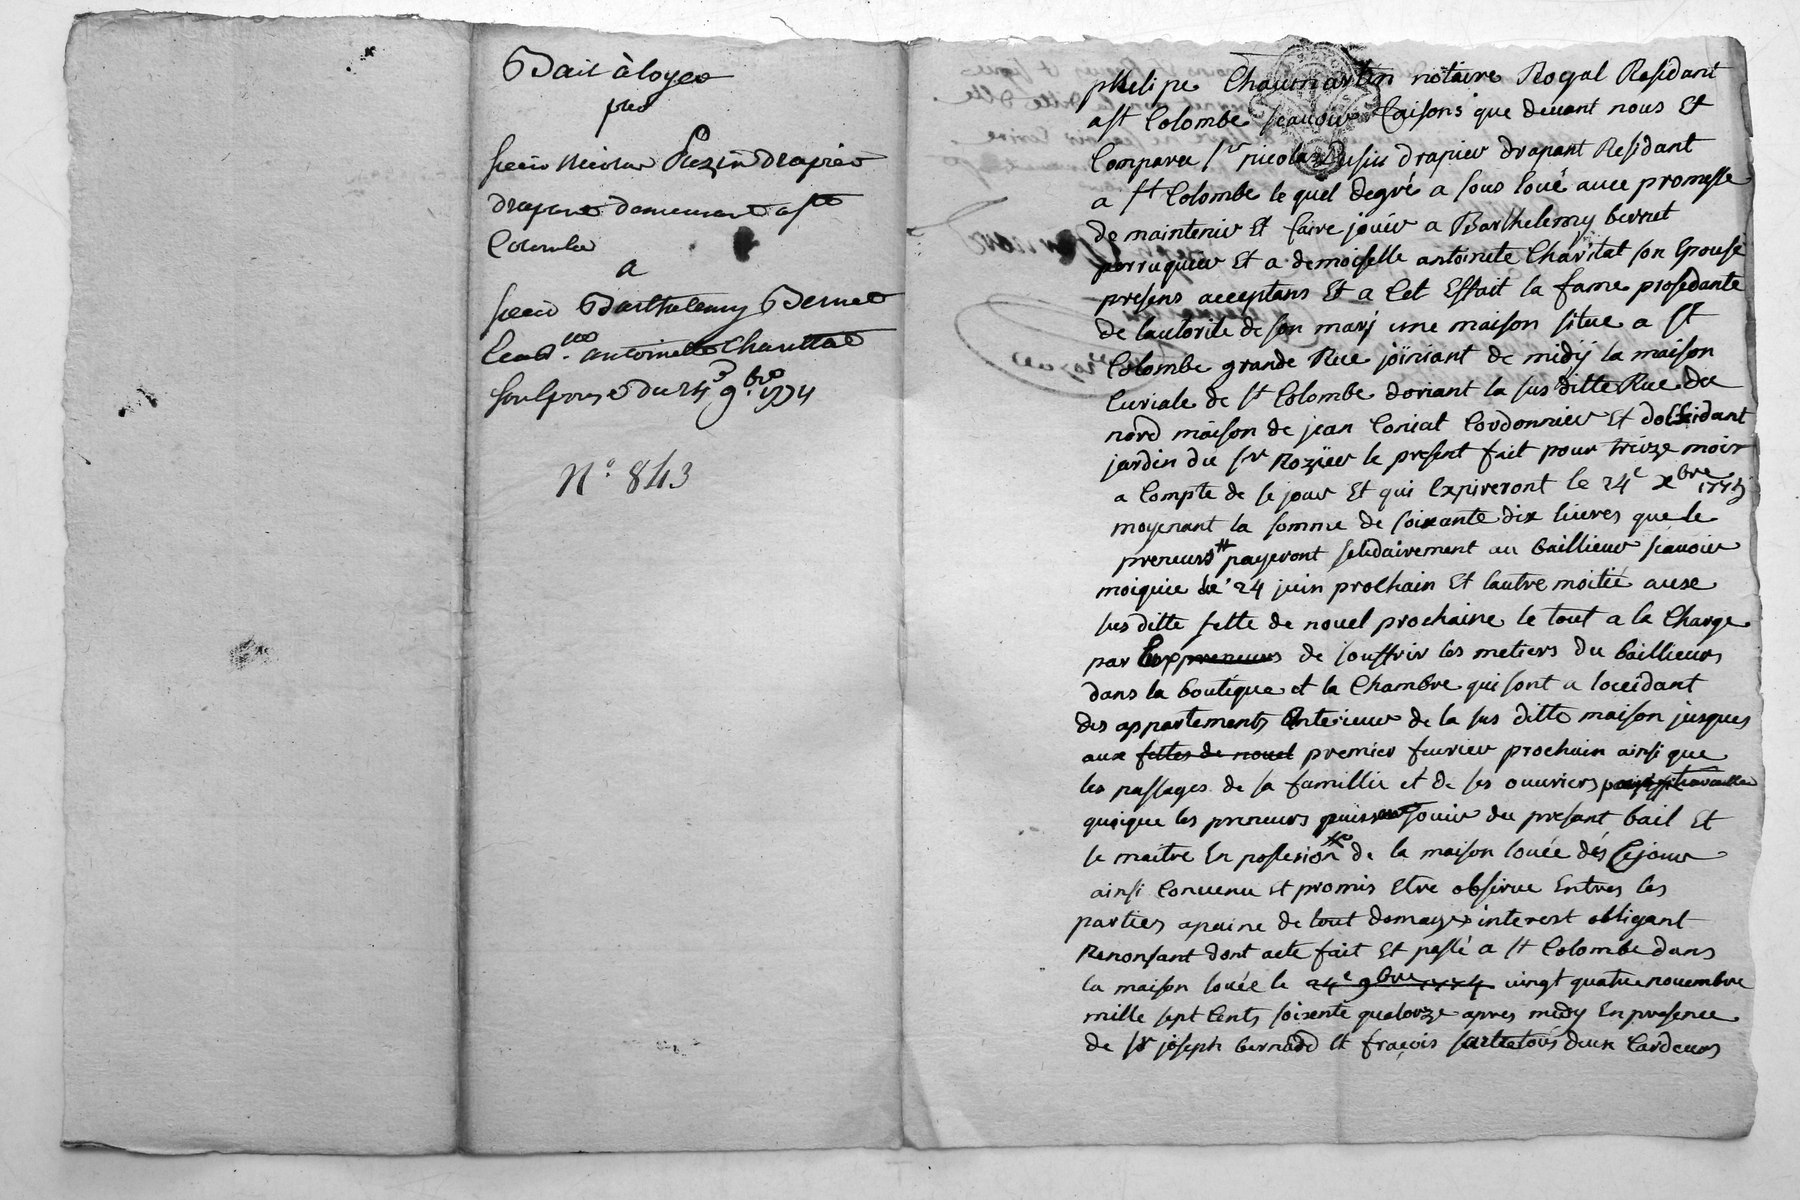 Bail à loyer
par
sieur Nicolas Pezin drapier
drapant demeurant a ste
Colombe
a
sieur Barthelemy Bernet
et dlle antoinette Charittat
son epouse du 24e 9bre 1774
N° 843
phelipe Chaumartin notaire Royal Residant
a st Colombe scavoir faisons que devant nous Et
Comparu sr nicolas drapier drapant Residant
a st Colombe le quel degré a sous loué avec promesse
de maintenir Et faire jouir a Barthelemy bernet
perruquier Et a demoiselle antoinete Charitat son Epouse
presens acceptans Et a Cet Effait la fame prosedante
de lautorite de son marj une maison situe a st
Colombe grande Rue joiniant de midÿ la maison
Curiale de st Colombe doriant la sus ditte Rue du
nord maison de jean Coniat Cordonnier Et dossidant
jardin du sr Rozier le present fait pour treize mois
a Compte de se jour Et qui Expireront le 24e xbre 1775
moyenant la somme de soixante dix livres que le
preneurs payeront solidairement au baillieur scavoir
moiquie le 24 juin prochain Et lautre moitié auxe
sus ditte fette de nouel prochaine le tout a la Charge
par les preneurs de souffrir les metiers du baillieurs
dans la boutique et la Chambre qui sont a loccidant
des appartements Enterieur de la sus ditte maison jusques
aux fettes de nouel premier fevrier prochain ainsi que
les passages de sa famillie et de ses ouvriers
quoique les preneurs puissent jouir du presant bail Et
se maitre En possesion de la maison louée dés Cejour
ainsi Convenu Et promis Etre observe Entres les
parties apaine de tout domages interest obligant
Renonsant dont acte fait Et passé a st Colombe dans
la maison louée le 24e 9bre 1774 vingt quatre novembre
mille sept Cents soixente quatorze apres midy En presence
de sr joseph bernard Et fraçois tous deux Cardeurs